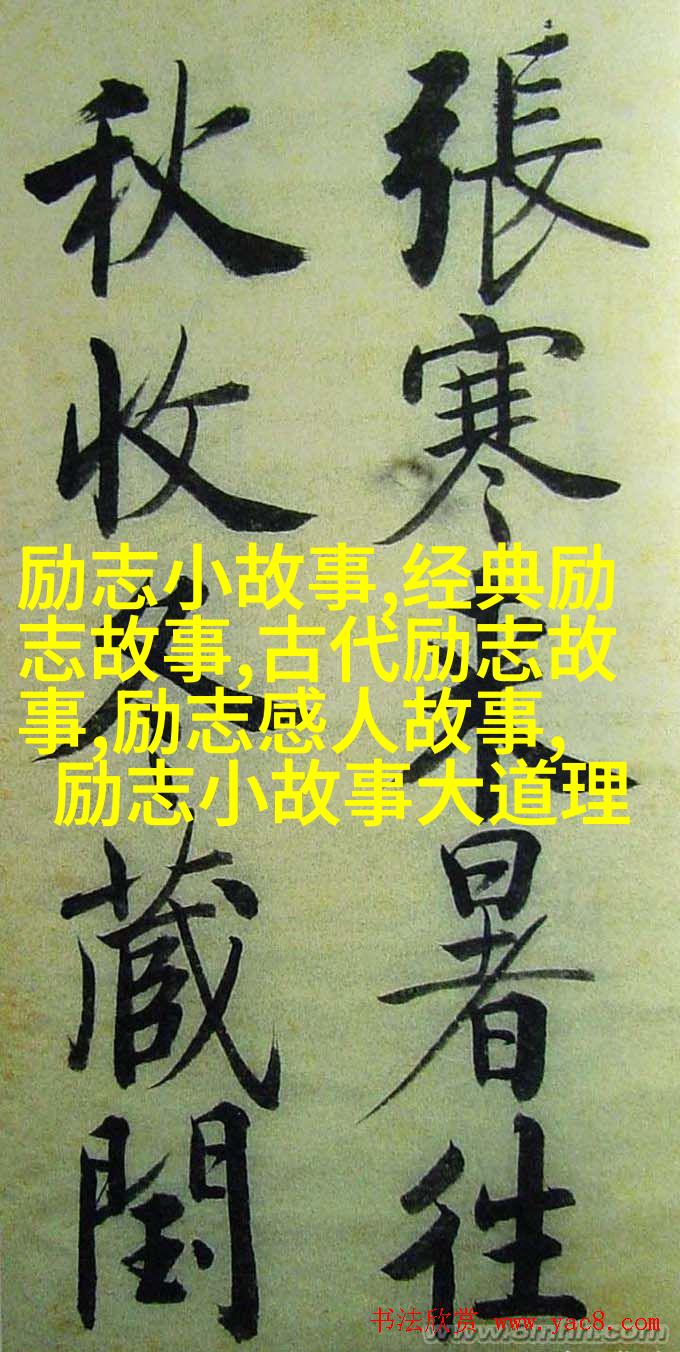 張寒来暑往
秋收冬藏閏
励志小故事,经典励
志故事,古代励志故
事,励志感人故事,
励志小故事大道理
书法欣赏 www.yac8.com